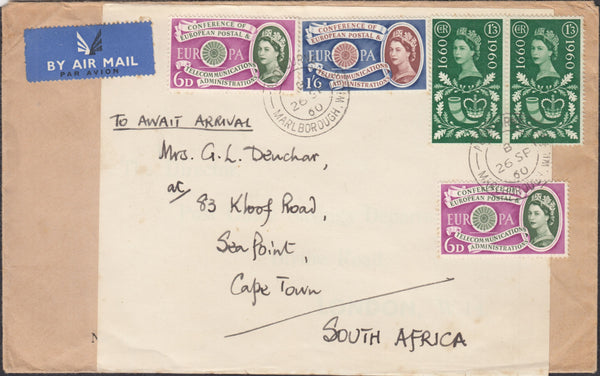 BY AIR MAIL
PAR AVION
CONFERENCE OF
EUROPEAN POSTAL &
EUROPA
TELECOMMUNICATIONS
ADMINISTRATIONS
6D
CONFERENCE OF
EUROPEAN POSTAL &
EUROPA
TELECOMMUNICATIONS
ADMINISTRATIONS
1/6
E R 1/3
1660 1960
E R 1/3
1660 1960
26 SP
60
MARLBOROUGH. WI
26 SP
60
TO AWAIT ARRIVAL
Mrs. G. L. Denchar,
at
83 Kloof Road,
Sea Point,
Cape Town
SOUTH AFRICA
CONFERENCE OF
EUROPEAN POSTAL &
EUROPA
TELECOMMUNICATIONS
ADMINISTRATIONS
6D